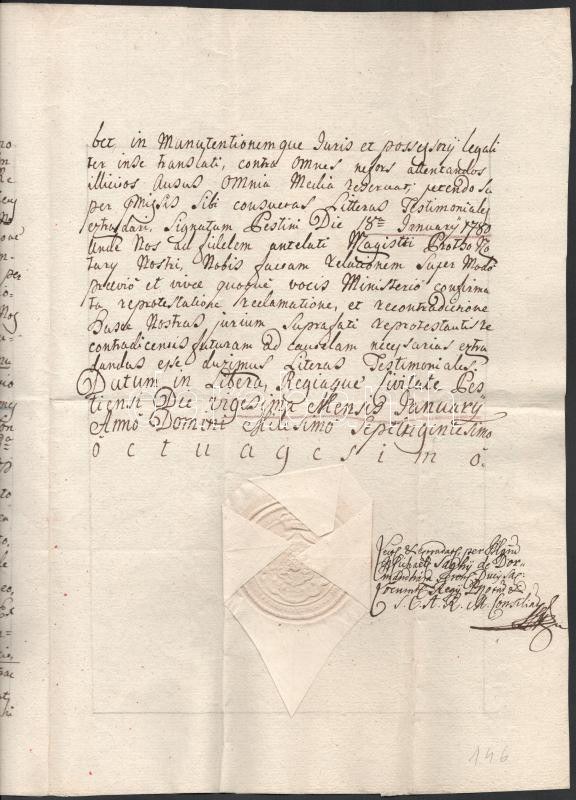 bet, in Manutentionemque Juris et possessorij legali
ter inde translati, contra omnes nefors attentandos
illicitos Ausus Omnia Media reservari, petendo Su
per Praemissis Sibi consvetas Litteras Testimoniales
extradari, Signatum Pestini Die 18va January 1780
Unde Nos ad fidelem antelati Magistri Protho No
tary Nostri, Nobis factam relationem Super Modo
previo et vivae quoque vocis Ministerio confirma
ta reprotestatione reclamatione, et recontradictione
Hasce Nostras jurium Suprafati reprotestantis re
contradicentis futuram ad cautelam necessarias extra
dandas esse duximus Literas Testimoniales
Datum in Libera, Regiaque Civitate Pes
tiensi Die vigesima Mensis January
Anno Domini Millesimo Septingentesimo
Octuagesimo.
per
Michaelem Saghÿ de
S. C. A. R. M. Consilia
146